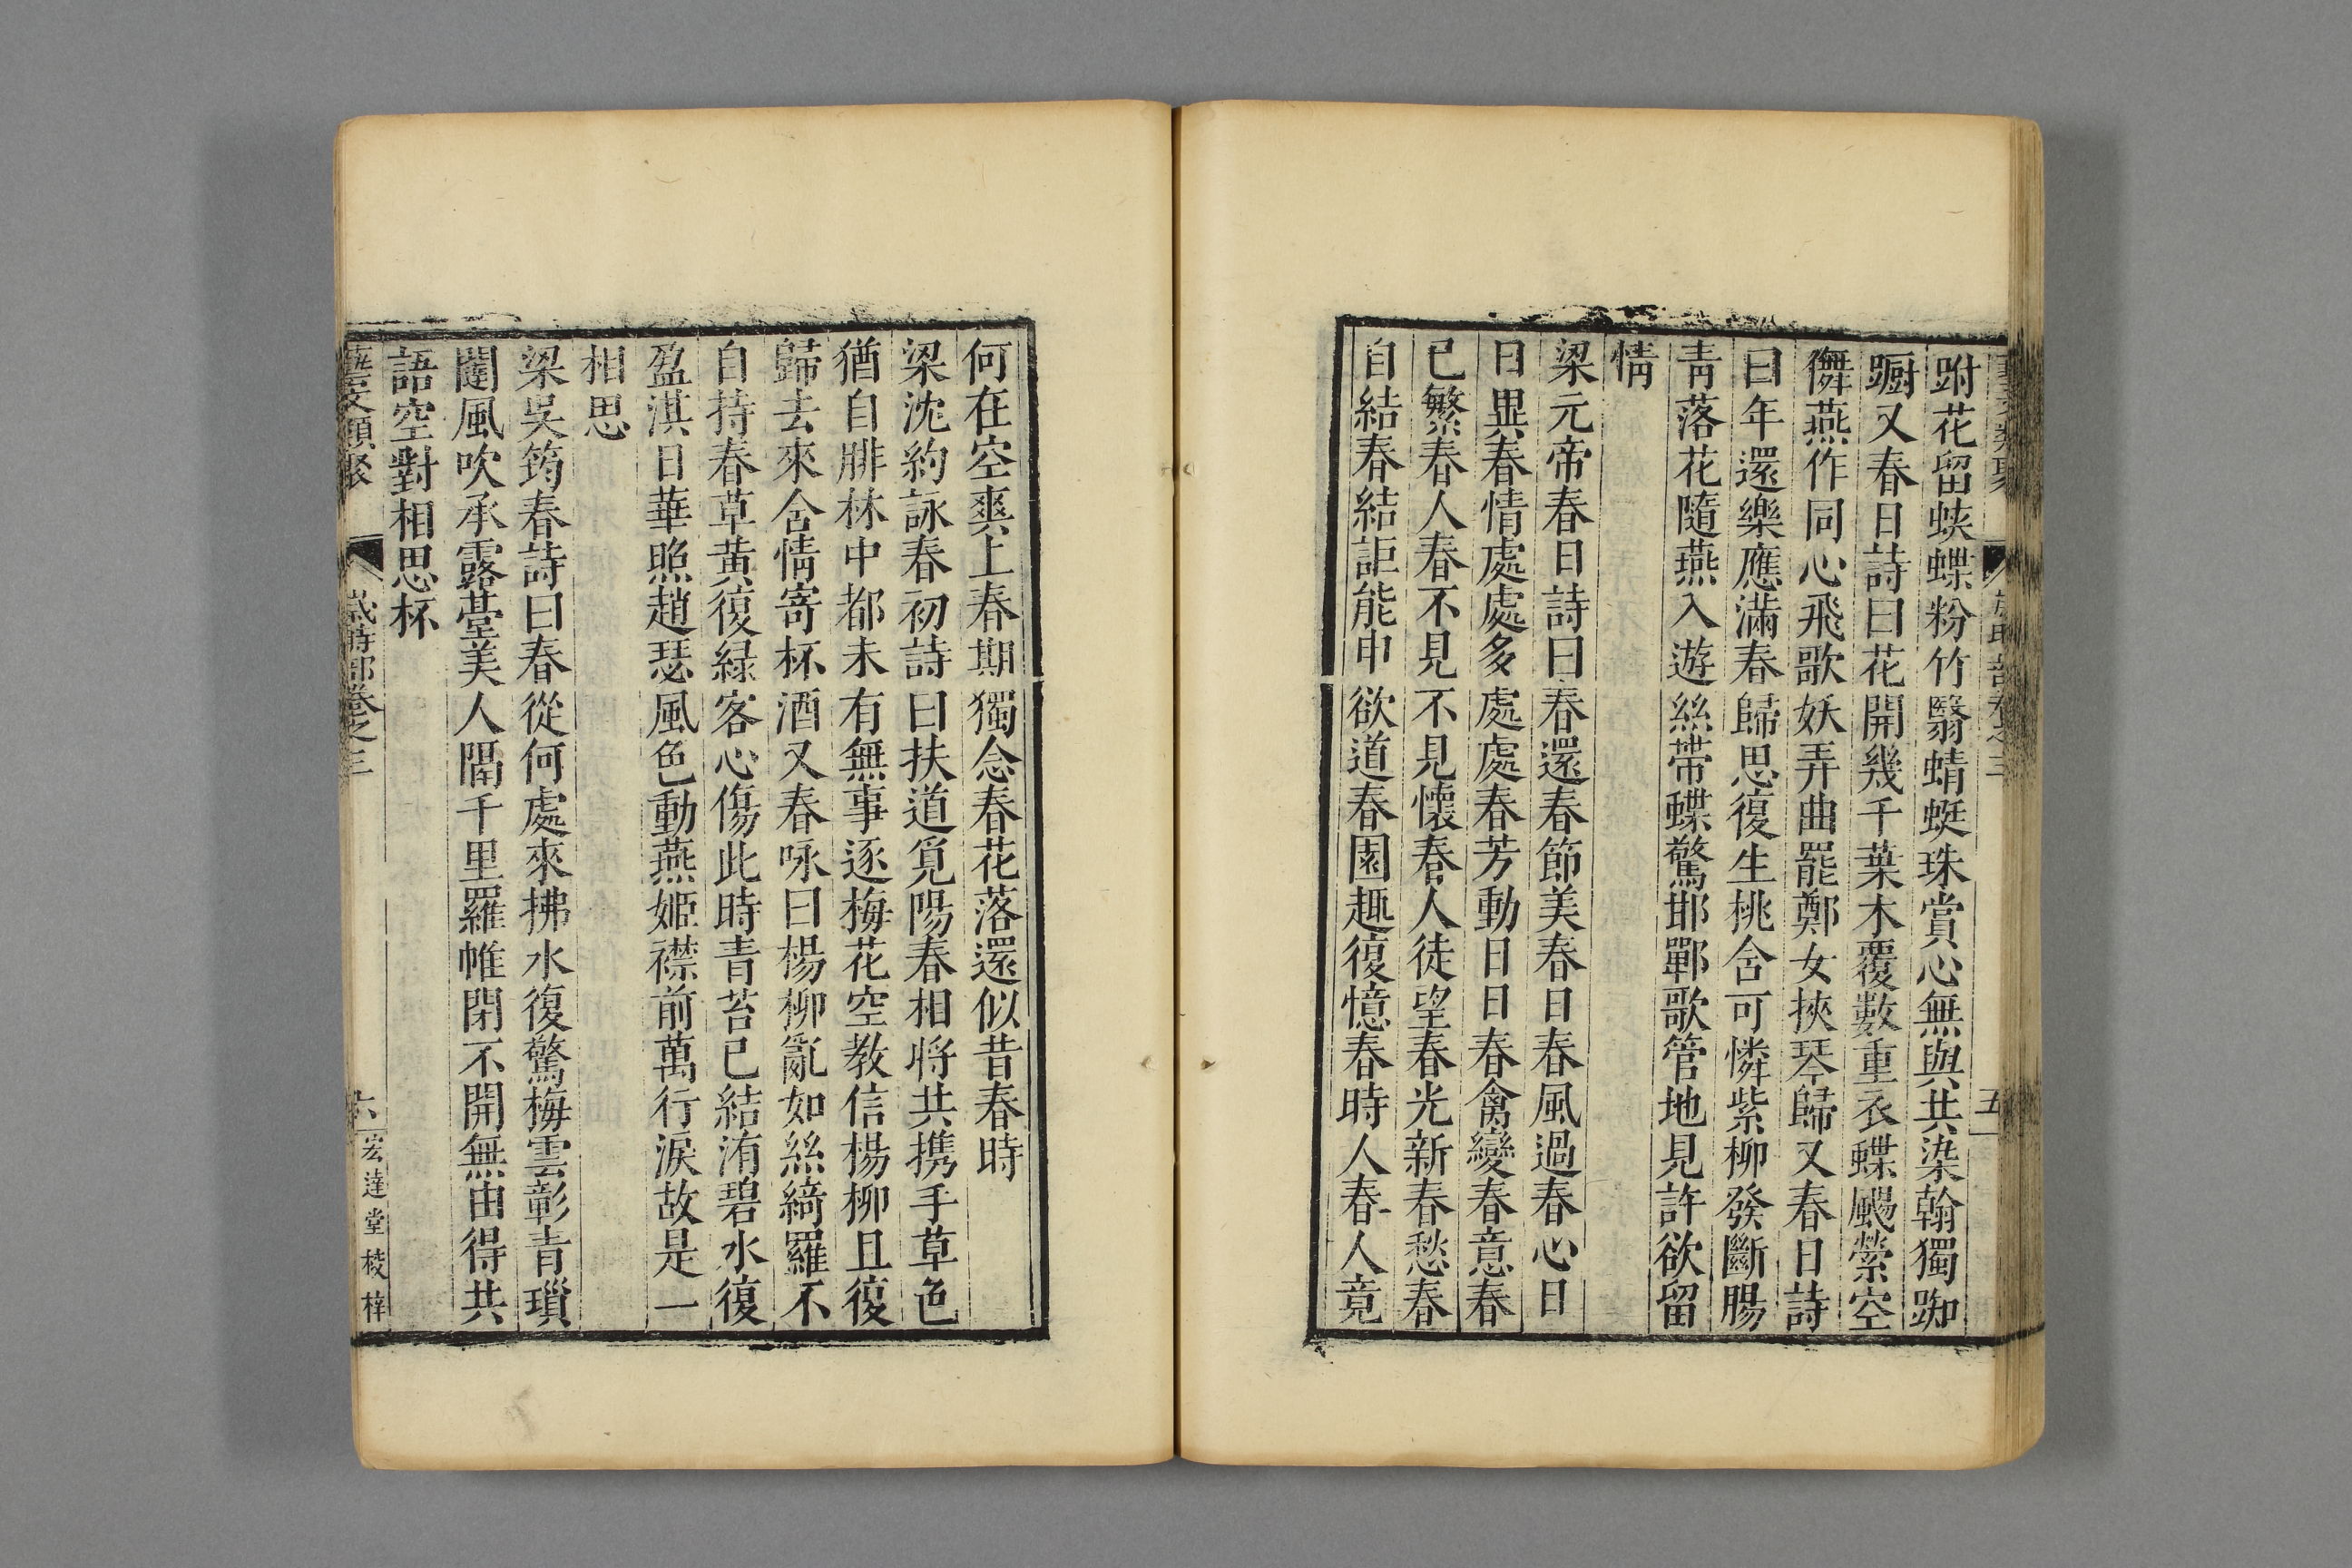 跗花留蛺蝶粉竹翳蜻蜓珠賞心無與共染翰獨踟
蹰又春日詩曰花開幾千葉木覆數重衣蝶颺縈空
儛燕作同心飛歌妖弄曲罷鄭女挾琴歸又春日詩
曰年還樂應滿春歸思復生桃含可憐紫柳發斷腸
青落花隨燕入遊絲帶蝶驚邯鄲歌管地見許欲留
情
梁元帝春日詩曰春還春節美春日春風過春心日
日異春情處處多處處春芳動日日春禽變春意春
已繁春人春不見不見懷春人徒望春光新春愁春
自結春結詎能申欲道春園趣復憶春時人春人竟
何在空爽上春期獨念春花落還似昔春時
梁沈約詠春初詩曰扶道覓陽春相將共携手草色
猶自腓林中都未有無事逐梅花空教信楊柳且復
歸去來含情寄杯酒又春咏曰楊柳亂如絲綺羅不
自持春草黃復緑客心傷此時青苔已結洧碧水復
盈淇日華照趙瑟風色動燕姬襟前萬行淚故是一
相思
梁吳筠春詩曰春從何處來拂水復驚梅雲彰青瑣
闥風吹承露臺美人隔千里羅帷閉不開無由得共
語空對相思杯
藝文類聚 歲時部卷之三 六 宏達堂校梓